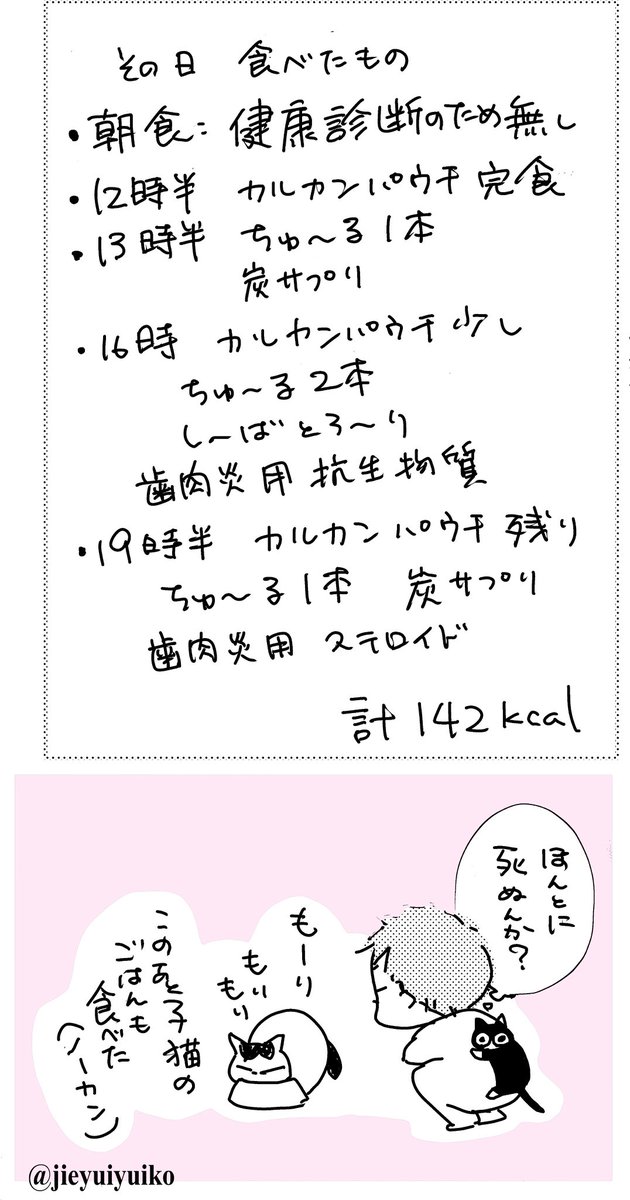 その日 食べたもの
・朝食: 健康診断のため無し
・12時半 カルカンパウチ 完食
・13時半 ちゅ〜る1本
炭サプリ
・16時 カルカンパウチ少し
ちゅ〜る2本
し〜ばとろ〜り
歯肉炎用 抗生物質
・19時半 カルカンパウチ 残り
ちゅ〜る1本 炭サプリ
歯肉炎用 ステロイド
計142kcal
ほんとに
死ぬんか?
もーり
もり
もり
このあと子猫の
ごはんも
食べた
(ノーカン)
@jieyuiyuiko